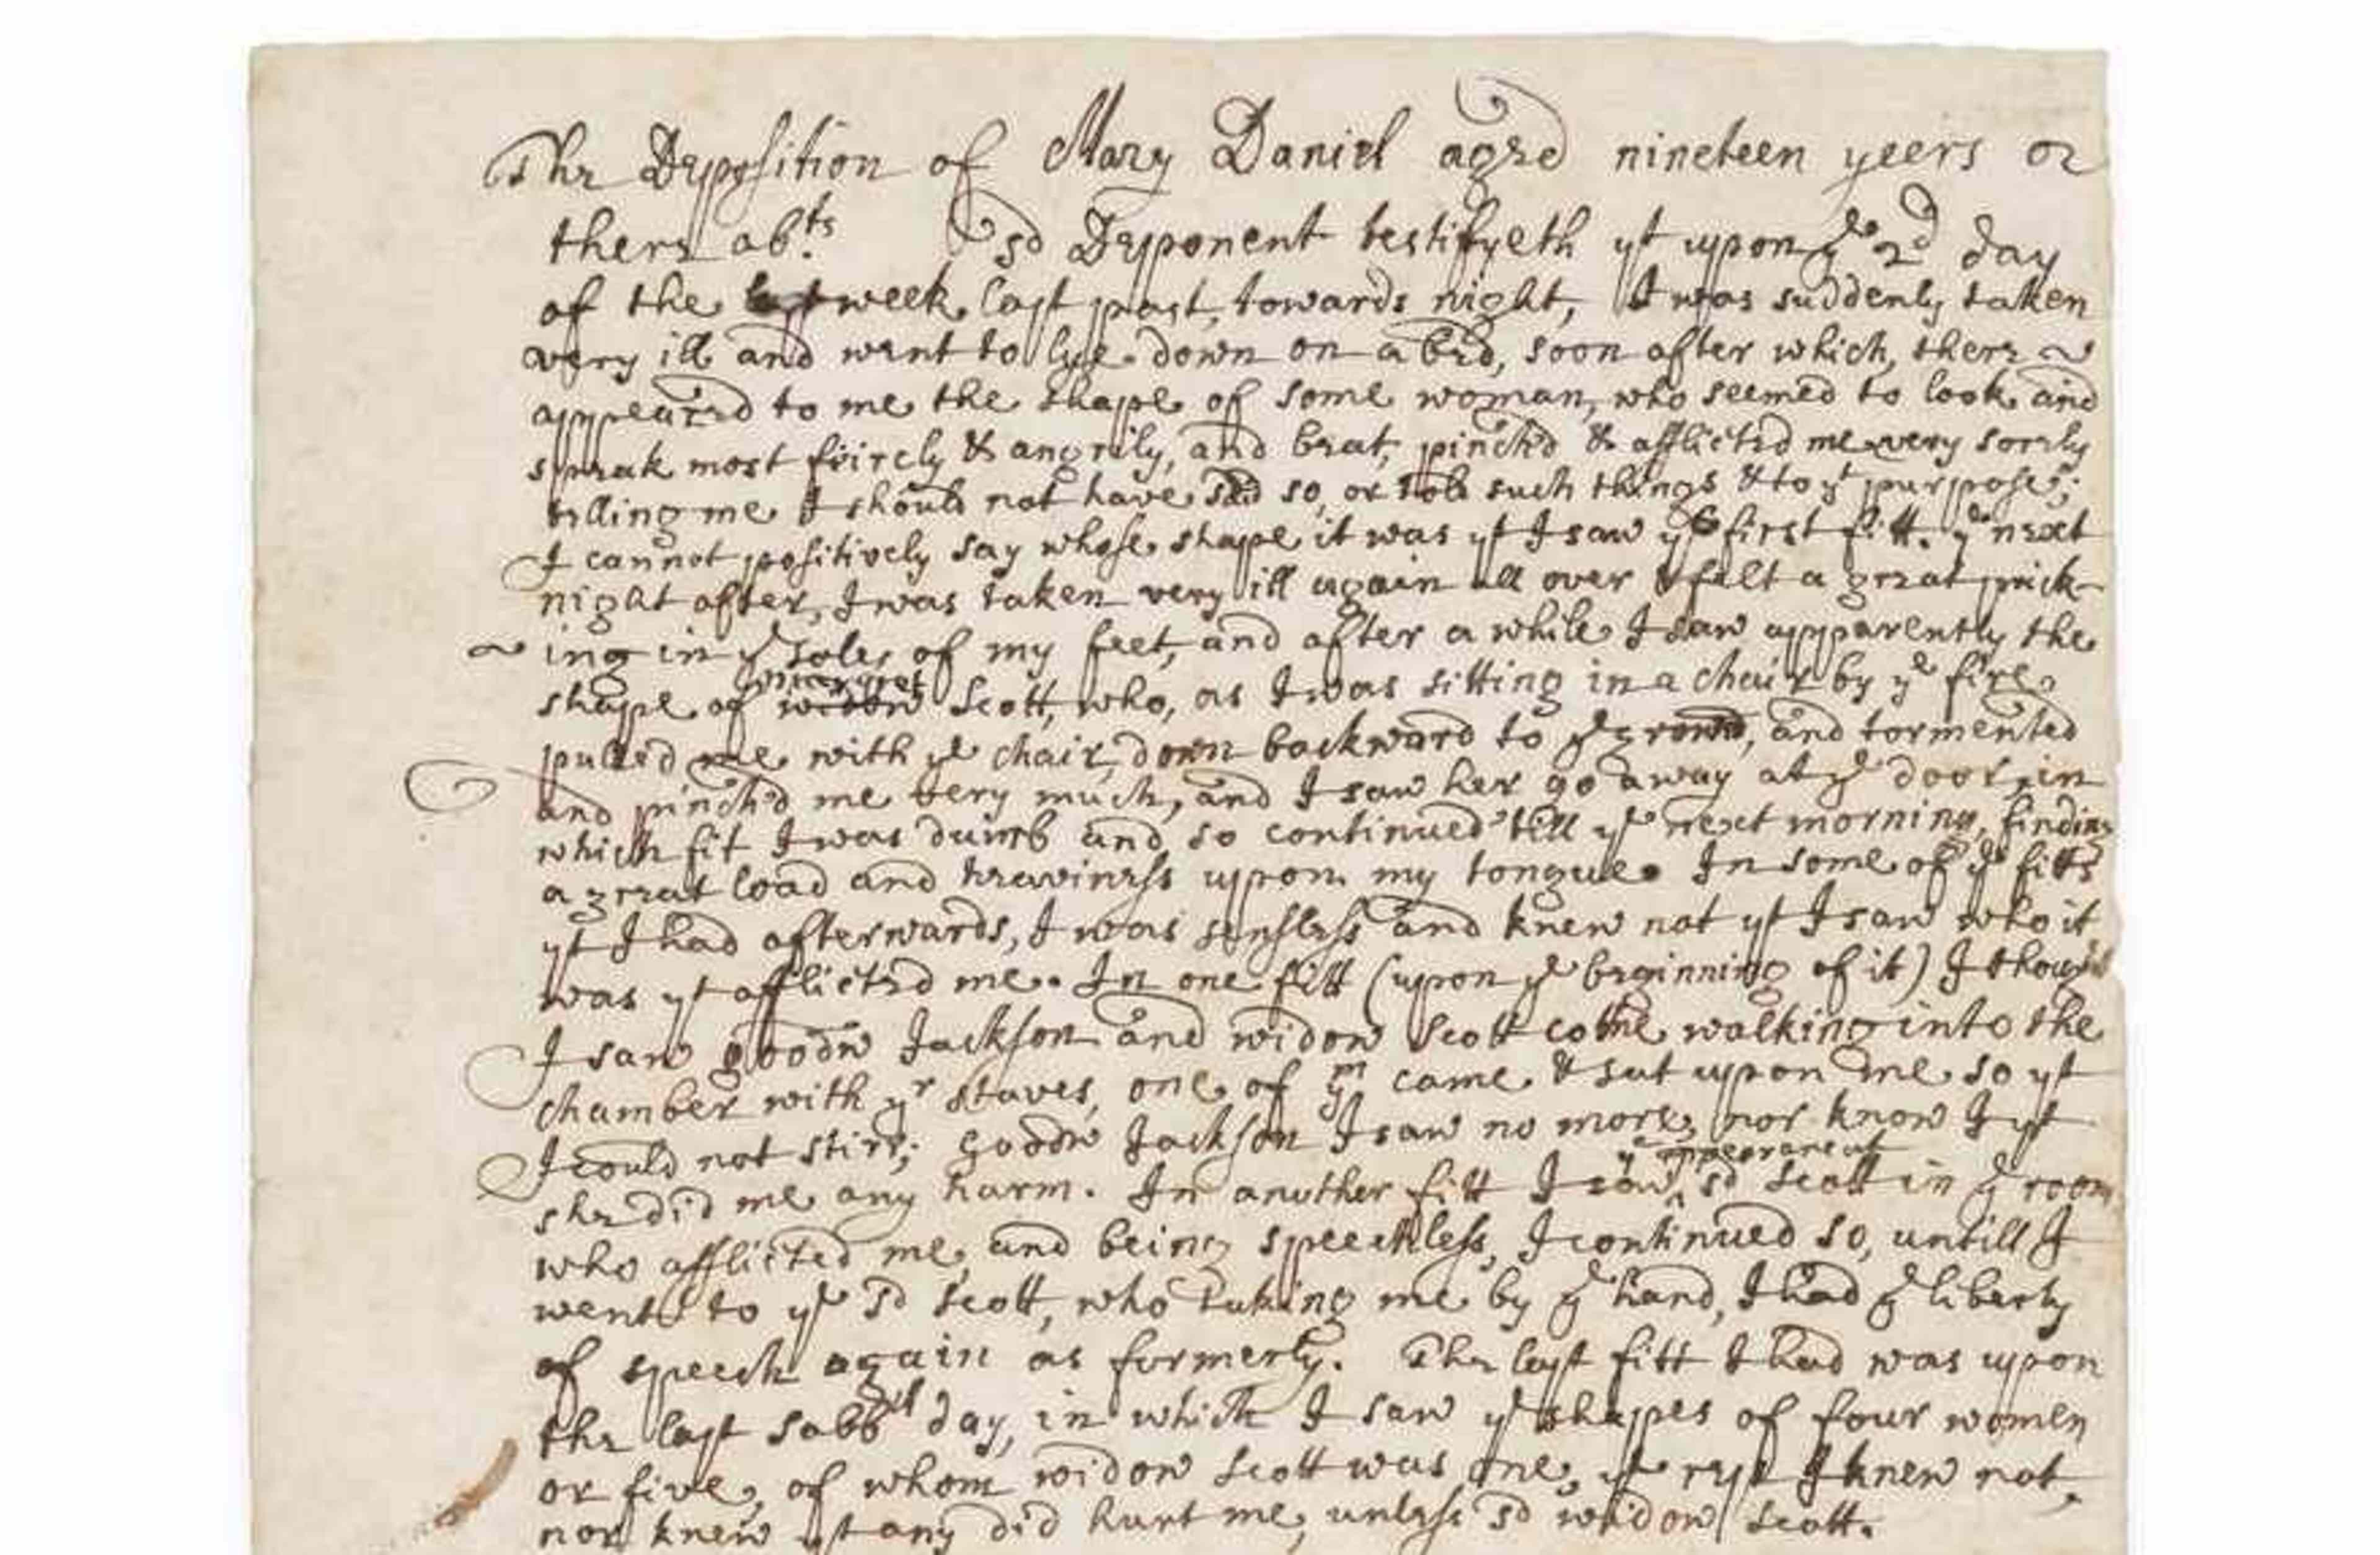 The Deposition of Mary Daniel aged nineteen yeers or
there abts. Ye sd Deponent testifyeth yt upon ye 2d day
of the week last past, towards night, I was suddenly taken
very ill and went to lye down on a bed, soon after which, there
appeared to me the shape of some woman, who seemed to look and
speak most feircly & angrily, and beat, pinch'd & afflicted me very sorely
telling me I should not have said so, or told such things & to yt purpose;
I cannot positively say whose shape it was yt I saw ye first fitt. ye next
night after, I was taken very ill again all over & felt a great prick-
ing in ye soles of my feet, and after a while I saw apparently the
shape of widow margret Scott, who, as I was sitting in a chair by ye fire
pulled me with ye chair, down backward to ye ground, and tormented
and pinch'd me very much, and I saw her go away at ye door, in
which fit I was dumb and so continued till ye next morning, finding
a great load and heaviness upon my tongue. In some of ye fitts
yt I had afterwards, I was sensless and knew not yt I saw who it
was yt afflicted me. In one fitt (upon ye beginning of it) I thought
I saw goodw Jackson and widow Scott come walking into the
chamber with yr staves, one of ym came & sat upon me so yt
I could not stirr; goodw Jackson I saw no more, nor know I yt
she did me any harm. In another fitt I saw ye appearance of sd Scott in ye room
who afflicted me, and being speechless, I continued so, untill I
went to ye sd Scott, who taking me by ye hand, I had ye liberty
of speech again as formerly. The last fitt I had was upon
the last Sabbath day, in which I saw ye shapes of four women
or five, of whom widow Scott was one, ye rest I knew not,
nor knew yt any did hurt me, unless sd widow Scott.